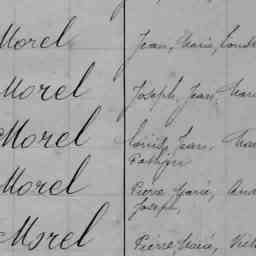 Morel Jean, Marie, Louis
Morel Joseph, Jean, Marie
Morel Louis, Jean,
Morel Pierre, Marie,
Joseph,
Morel Pierre, Marie, Vict